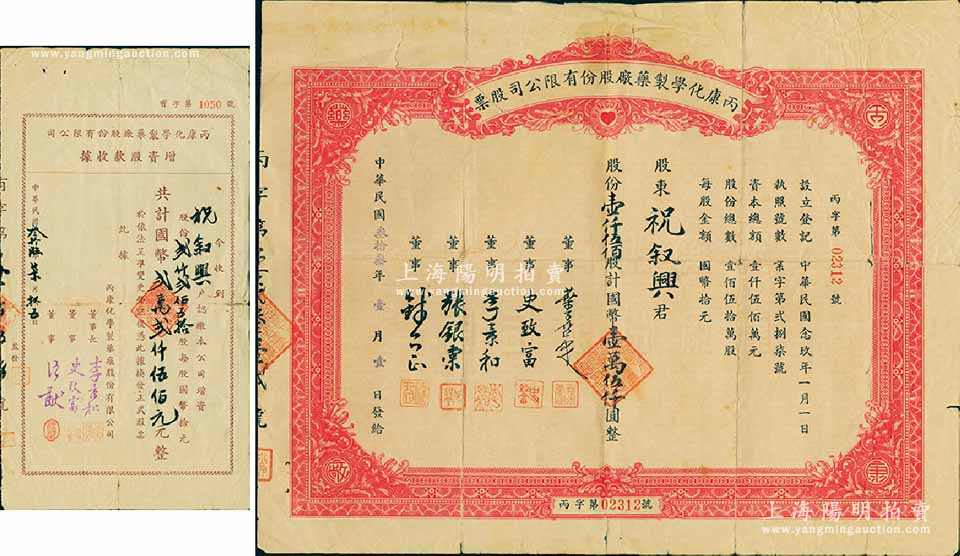 暫字第1050號
丙康化學製藥廠股份有限公司
增資股款收據
今收到
祝叙興戶認繳本公司增資
股份貳仟貳佰五拾股每股國幣拾元
共計國幣貳萬貳仟伍佰元元整
此據
丙康化學製藥廠股份有限公司
董事長 李彥和
董事 史致富
董事
丙康化學製藥廠股份有限公司股票
丙字第02312號
設立登記 中華民國念玖年一月一日
執照號數 業字第弍捌柒號
資本總額 壹仟伍佰萬元
股份總數 壹佰伍拾萬股
每股金額 國幣拾元
股東祝叙興君
股份壹仟伍佰股計國幣壹萬伍仟圓整
董事
董事 史致富
董事 李彥和
董事 張銀票
董事
中華民國叁拾叁年壹月壹日發給
丙字第02312號
上海陽明拍賣
www.yangmingauction.com
上海陽明拍賣
www.yangmingauction.com
上海陽明拍賣
www.yangmingauction.com